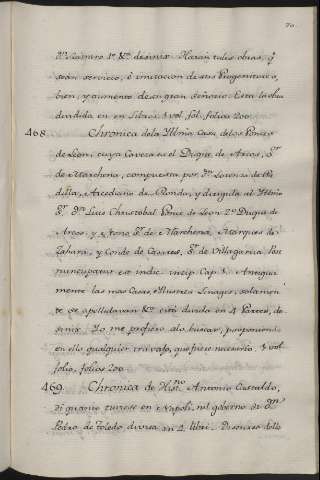 70.
seran servicio, è imitacion de sus Progenitores,
bien, y aumento de su gran Señorio. Esta la obra
dividida en en Libros. 1 vol. fol. folios 200.
468. Chronica dela Illma Casa delos Ponces
de Leon, cuya Caveza es el Duque de Arcos, Sr.
de Marchena, compuesta por Dn. Lorenzo de Pa-
dilla, Arcediano de Ronda, y dirigida al Illmo
Sr. Dn. Luis Christobal Ponce de Leon 2º Duque de
Arcos, y Sr. de Marchena, Marques de
Zahara, y Conde de Casares, Sr. de Villagarcia. Post
nuncupator. est indic. incip. Cap. 1. Antigua
mente las mas Casas, Illustres Linages, solamen
te se apellidavan &c. està divida en 4 Partes, de-
sinit. Yo me profiero alo buscar, y poponerme
en ello qualquier travajo, que fuese necesario. 1 vol.
folio, folios 200.
469. Chronica de Histno. Antonio Castaldo,
di quanto successe in Napoli, nel governo de Dn.
Pedro de Toledo divisa en 4 libri. Desinit dello